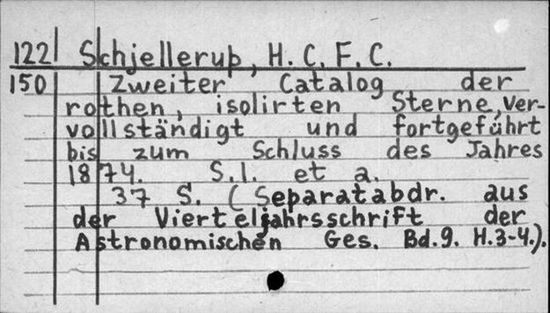 122 Schjellerup, H. C. F. C.
150 Zweiter Catalog der
rothen, isolirten Sterne, ver-
vollständigt und fortgeführt
bis zum Schluss des Jahres
1874. S.l. et a.
37 S. (Separatabdr. aus
der Vierteljahrsschrift der
Astronomischen Ges. Bd.9. H.3-4.).